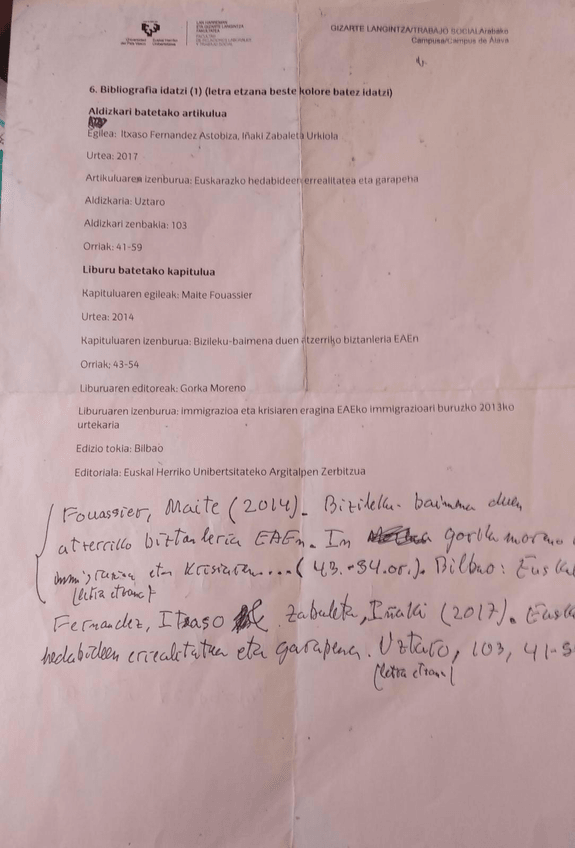 GIZARTE LANGINTZA/TRABAJO SOCIAL Arabako
Campusa/Campus de Álava
6. Bibliografia idatzi (1) (letra etzana beste kolore batez idatzi)
Aldizkari batetako artikulua
Egilea: Itxaso Fernandez Astobiza, Iñaki Zabaleta Urkiola
Urtea: 2017
Artikuluaren izenburua: Euskarazko hedabideen errealitatea eta garapena
Aldizkaria: Uztaro
Aldizkari zenbakia: 103
Orriak: 41-59
Liburu batetako kapitulua
Kapituluaren egileak: Maite Fouassier
Urtea: 2014
Kapituluaren izenburua: Bizileku-baimena duen atzerriko biztanleria EAEn
Orriak: 43-54
Liburuaren editoreak: Gorka Moreno
Liburuaren izenburua: immigrazioa eta krisiaren eragina EAEko immigrazioari buruzko 2013ko
urtekaria
Edizio tokia: Bilbao
Editoriala: Euskal Herriko Unibertsitateko Argitalpen Zerbitzua
Fouassier, Maite (2014). Bizileku-baimena duen
atzerriko biztanleria EAEn. In gorka moreno
immigrazioa eta Krisiaren.... (43.-54.or.). Bilbao: Euska
(letra etzana)
Fernandez, Itxaso Zabaleta, Iñaki (2017). Euska
hedabideen errealitatea eta garapena. Uztaro, 103, 41-5
(letra etzana)